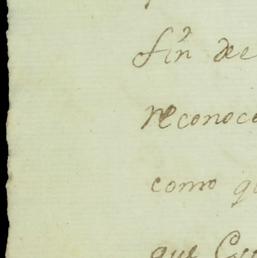 fin de
reconoc
como q
que